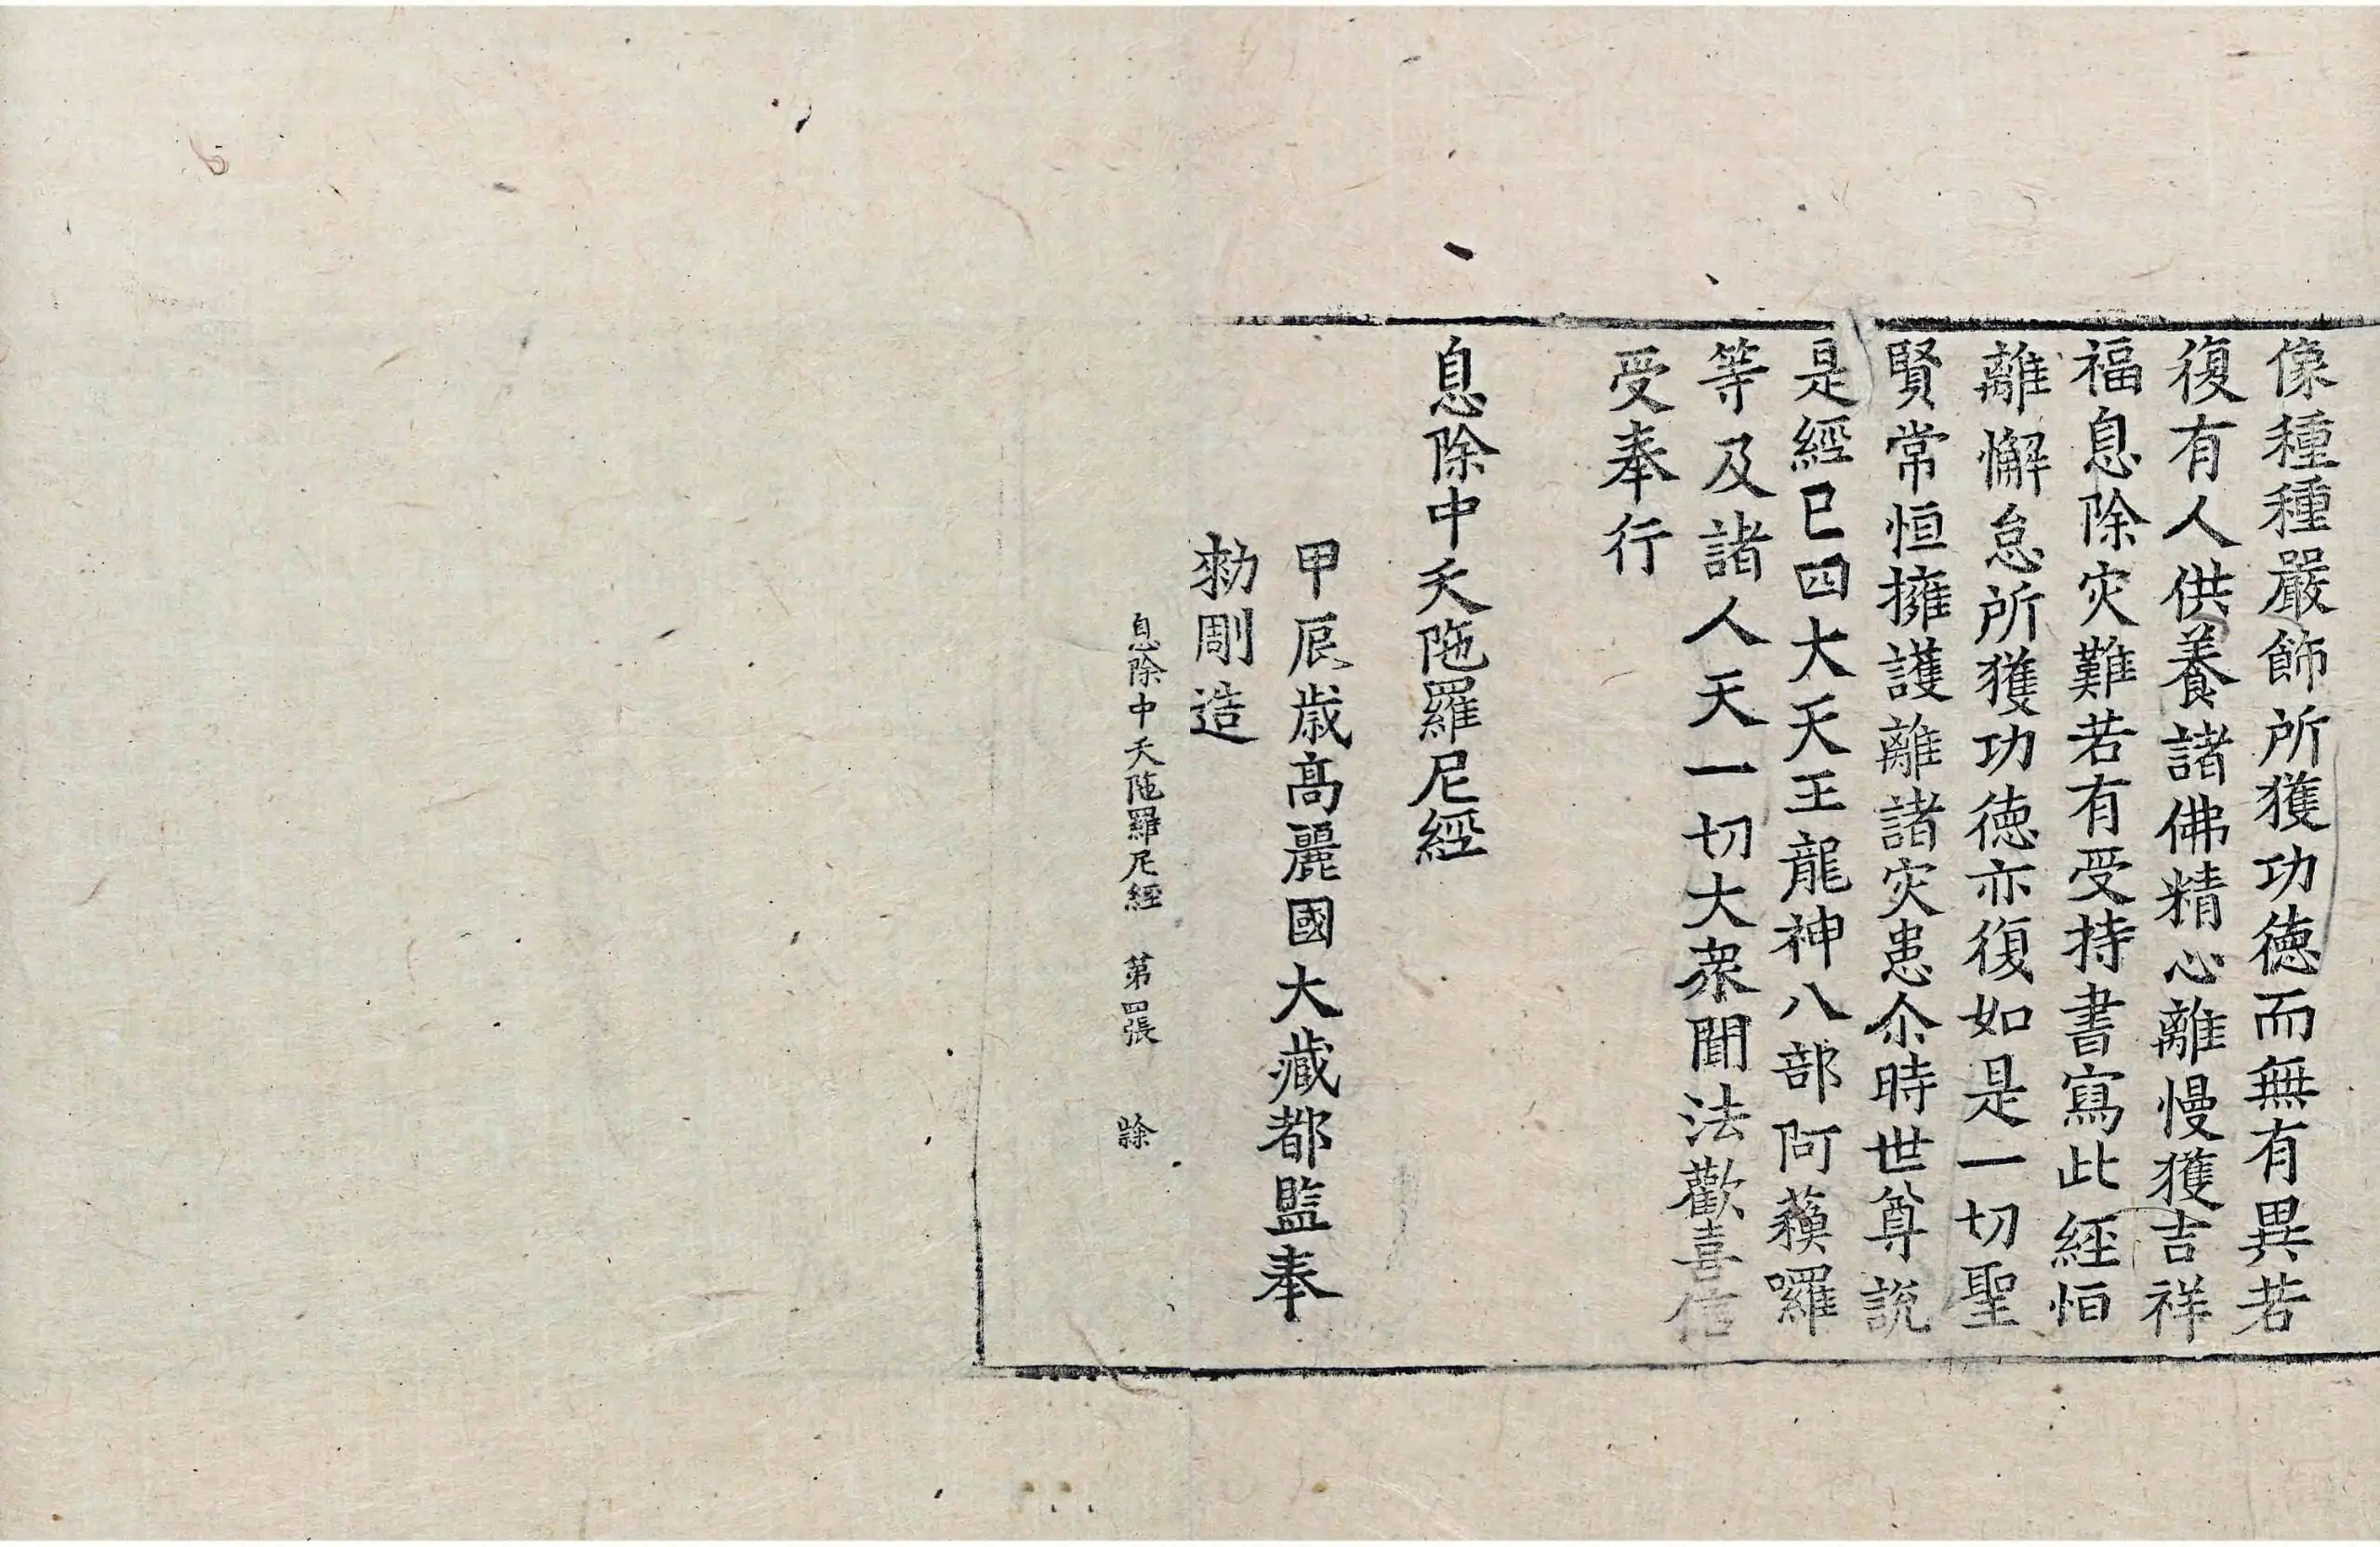 像種種嚴飾所獲功德而無有異若
復有人供養諸佛精心離慢獲吉祥
福息除灾難若有受持書寫此經恒
離懈怠所獲功德亦復如是一切聖
賢常恒擁護離諸灾患尒時世尊說
是經已四大天王龍神八部阿蘇囉
等及諸人天一切大衆聞法歡喜信
受奉行
息除中夭陁羅尼經
甲辰歲高麗國大藏都監奉
勑彫造
息除中夭陁羅尼經 第四張